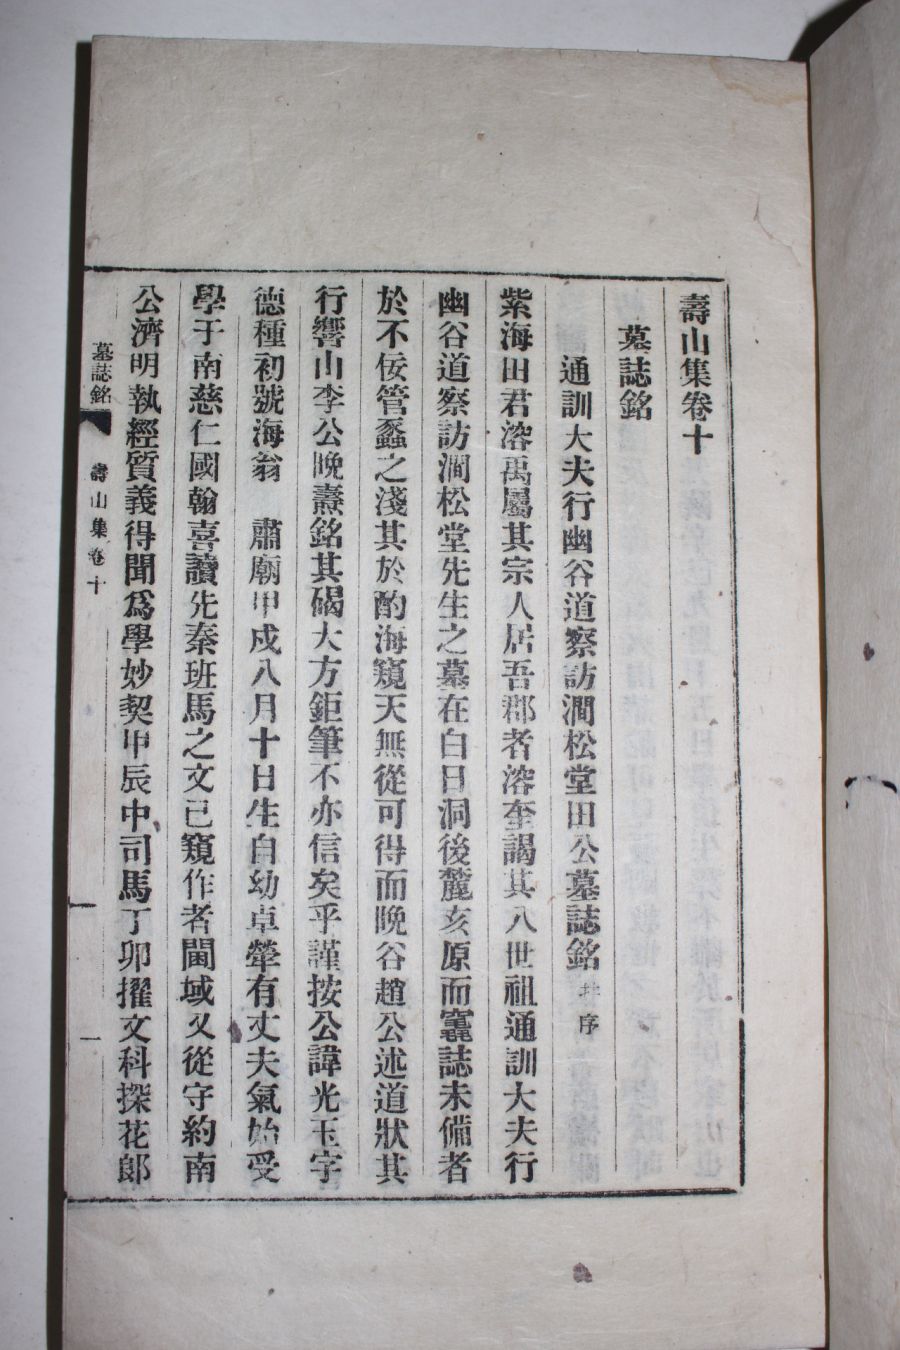 壽山集卷十
墓誌銘
通訓大夫行幽谷道察訪澗松堂田公墓誌銘 并序
紫海田君溶禹屬其宗人居吾郡者溶奎謁其八世祖通訓大夫行
幽谷道察訪澗松堂先生之墓在白日洞後麓亥原而竁誌未備者
於不佞管蠡之淺其於酌海窺天無從可得而晩谷趙公述道狀其
行響山李公晩燾銘其碣大方鉅筆不亦信矣乎謹按公諱光玉字
德種初號海翁 肅廟甲戌八月十日生自幼卓犖有丈夫氣始受
學于南慈仁國翰喜讀先秦班馬之文已窺作者閫域又從守約南
公濟明執經質義得聞爲學妙契甲辰中司馬丁卯擢文科探花郞
墓誌銘 壽山集卷十 一